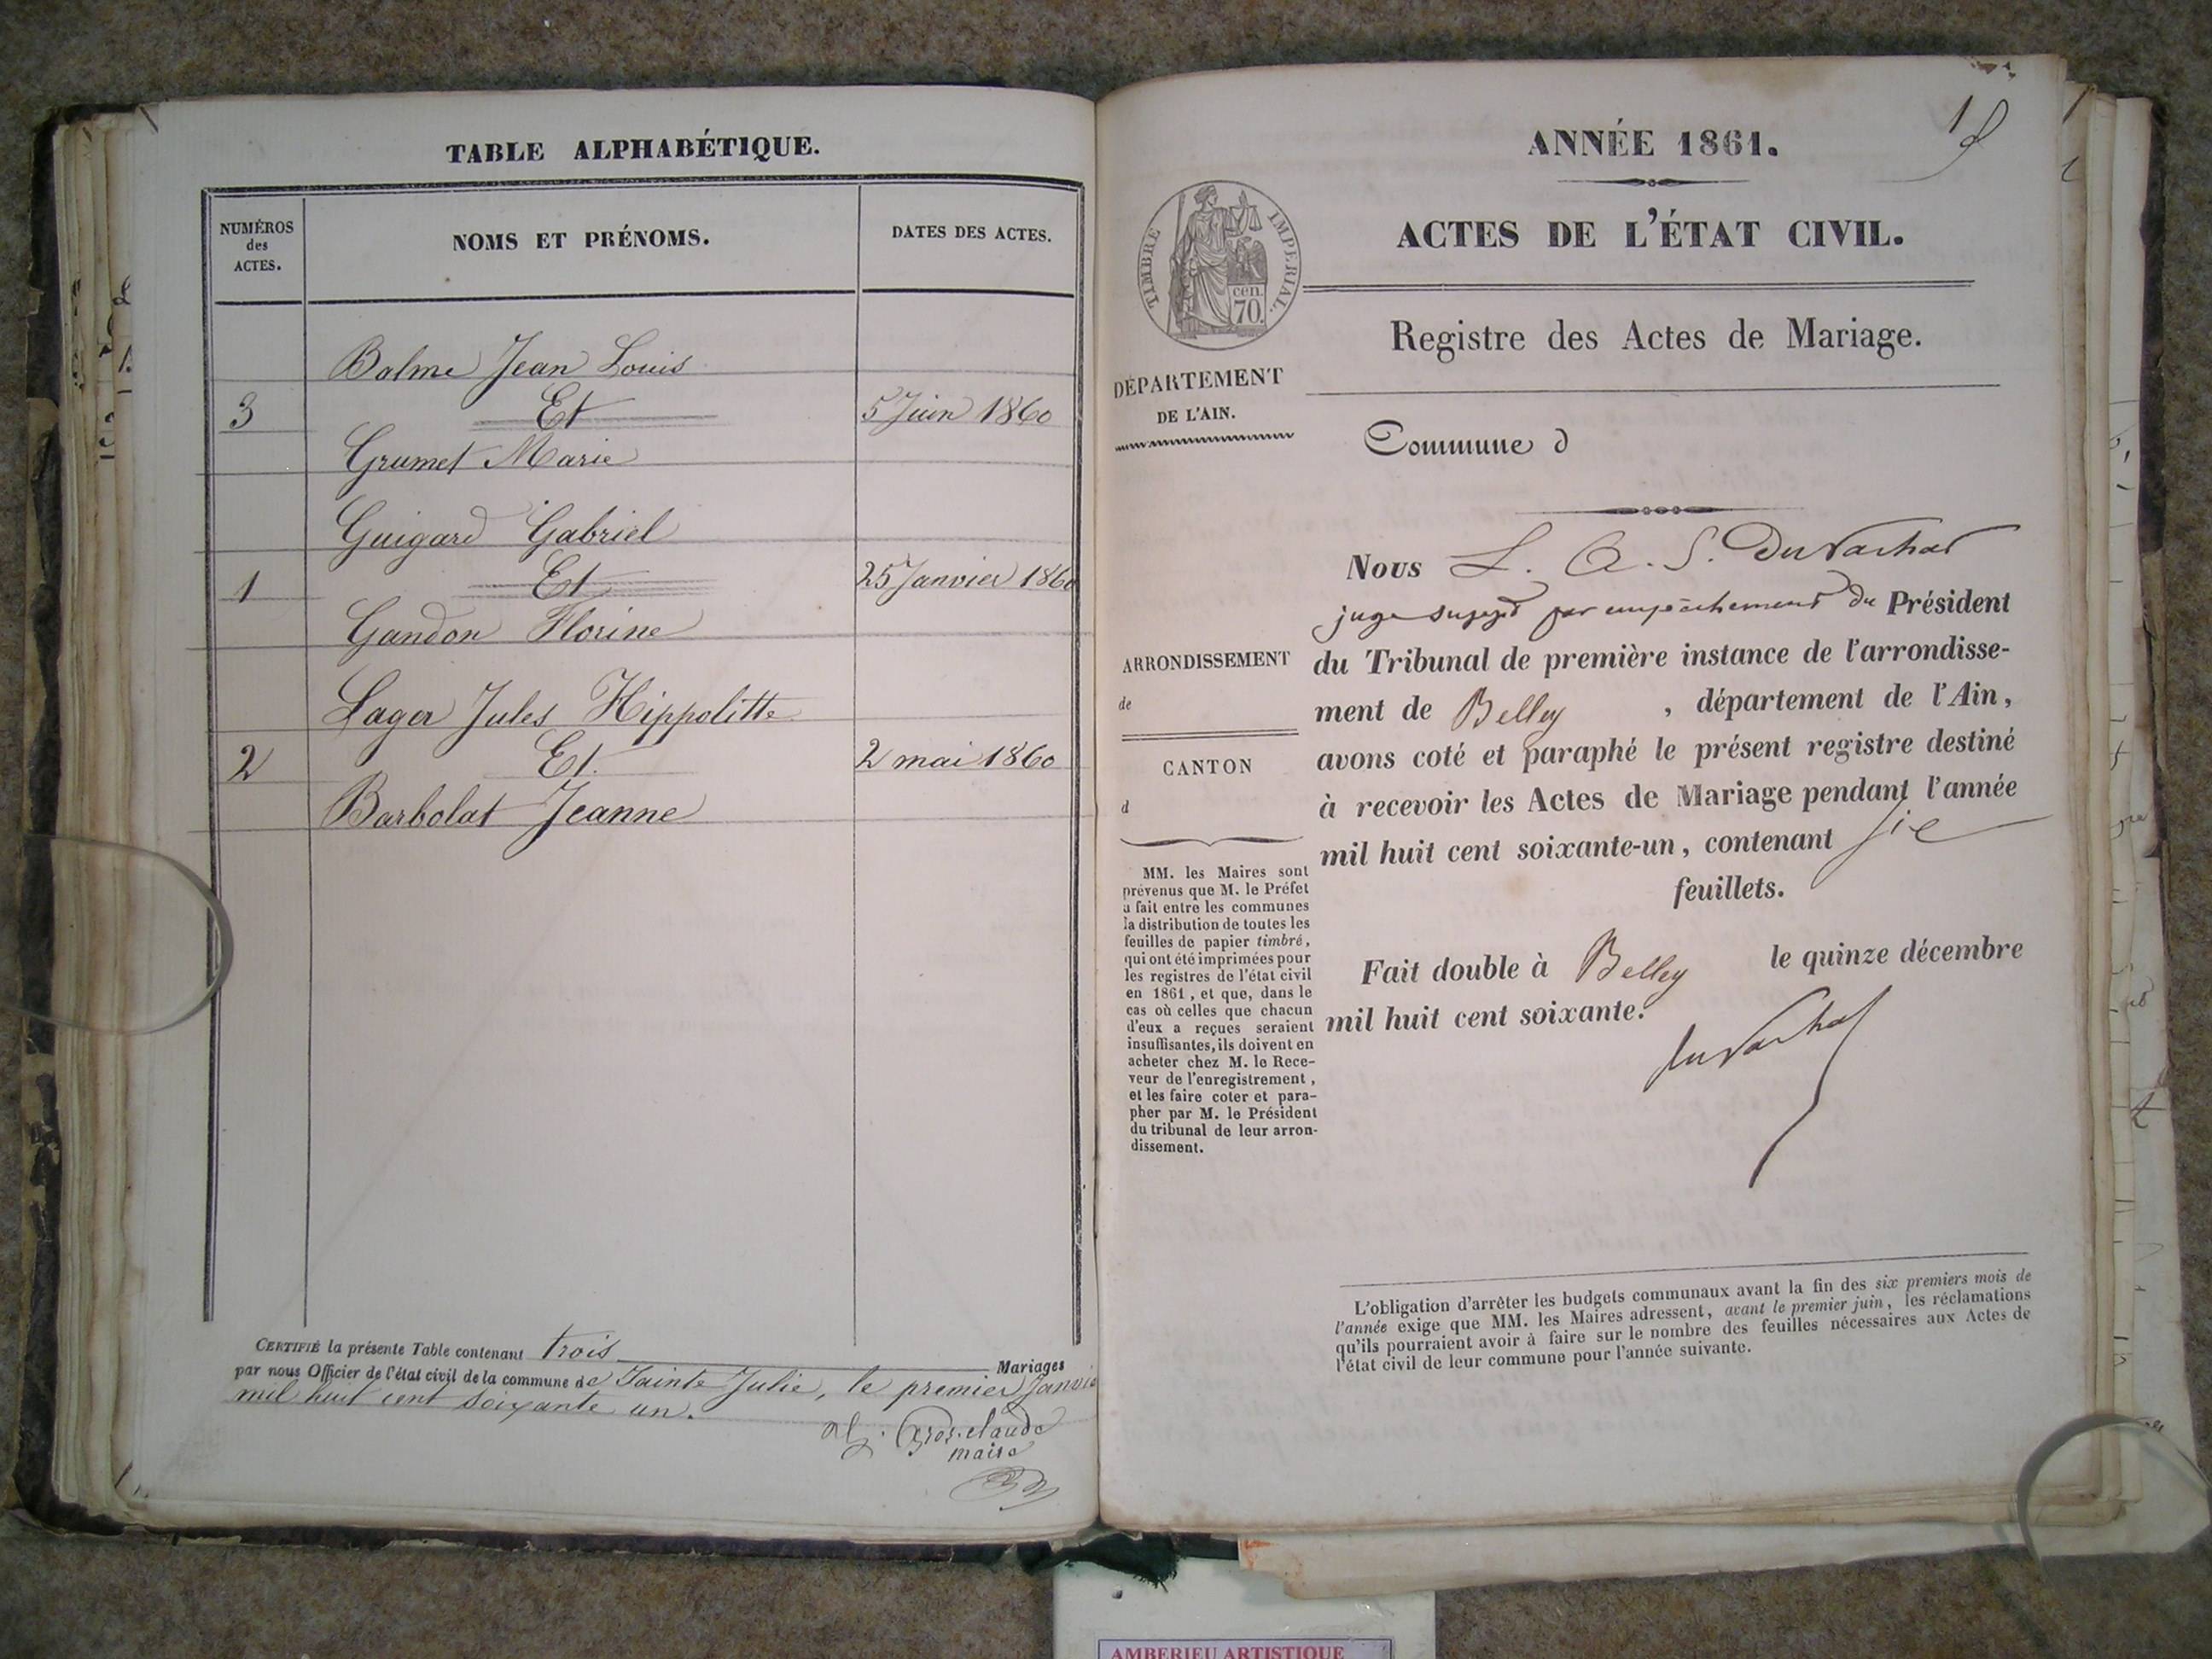 TABLE ALPHABÉTIQUE.
NUMÉROS
des
ACTES.
NOMS ET PRÉNOMS.
DATES DES ACTES.
Balme Jean Louis
3 Et 5 Juin 1860
Grumet Marie
Guigard Gabriel
1 Et 25 Janvier 1860
Gandon Florine
Lager Jules Hippolitte
2 Et. 2 mai 1860
Barbolat Jeanne
CERTIFIÉ la présente Table contenant trois Mariages
par nous Officier de l'état civil de la commune de Sainte Julie, le premier Janvier
mil huit cent soixante un.
Grosclaude
maire
1
ANNÉE 1861.
ACTES DE L'ÉTAT CIVIL.
TIMBRE IMPERIAL.
cen.
70.
Registre des Actes de Mariage.
DÉPARTEMENT
DE L'AIN.
Commune d
Nous L. A. S. Duvachat
juge suppt par empêchement du Président
du Tribunal de première instance de l'arrondisse-
ment de Belley , département de l'Ain,
avons coté et paraphé le présent registre destiné
à recevoir les Actes de Mariage pendant l'année
mil huit cent soixante-un, contenant six
feuillets.
Fait double à Belley le quinze décembre
mil huit cent soixante.
Duvachat
ARRONDISSEMENT
de
CANTON
d
MM. les Maires sont
prévenus que M. le Préfet
a fait entre les communes
la distribution de toutes les
feuilles de papier timbré,
qui ont été imprimées pour
les registres de l'état civil
en 1861, et que, dans le
cas où celles que chacun
d'eux a reçues seraient
insuffisantes, ils doivent en
acheter chez M. le Rece-
veur de l'enregistrement,
et les faire coter et para-
pher par M. le Président
du tribunal de leur arron-
dissement.
L'obligation d'arrêter les budgets communaux avant la fin des six premiers mois de
l'année exige que MM. les Maires adressent, avant le premier juin, les réclamations
qu'ils pourraient avoir à faire sur le nombre des feuilles nécessaires aux Actes de
l'état civil de leur commune pour l'année suivante.
AMBERIEU ARTISTIQUE